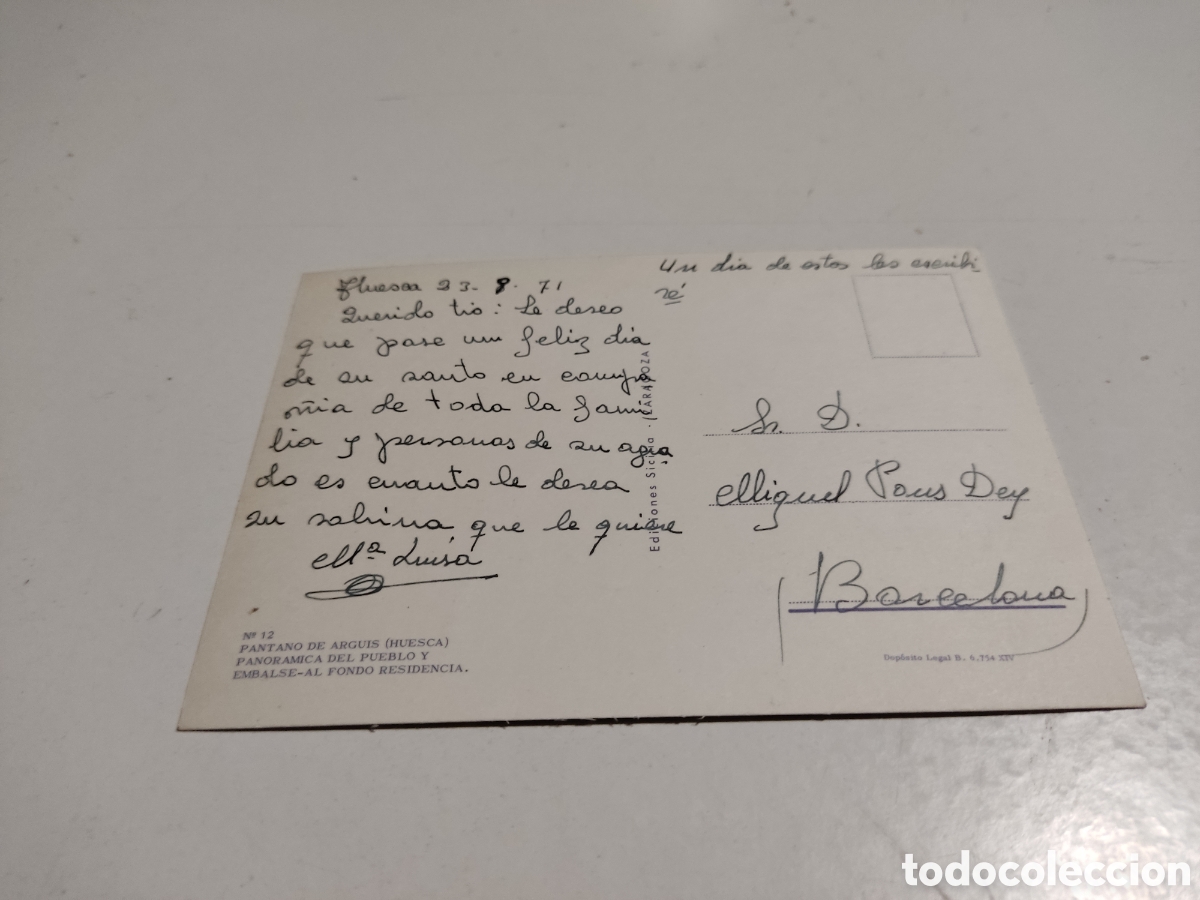 Huesca 23-9-71
Querido tio: Le deseo
que pase un feliz dia
de su santo en compa
ñia de toda la fami
lia y personas de su agra
do es cuanto le desea
su sobrina que le quiere
Mª Luisa
Nº 12
PANTANO DE ARGUIS (HUESCA)
PANORAMICA DEL PUEBLO Y
EMBALSE-AL FONDO RESIDENCIA.
Ediciones Sicilio - ZARAGOZA
Un dia de estos les escribi
ré
Sr. D.
Miguel Pons Dey
Barcelona
Depósito Legal B. 6.754 XIV
todocoleccion